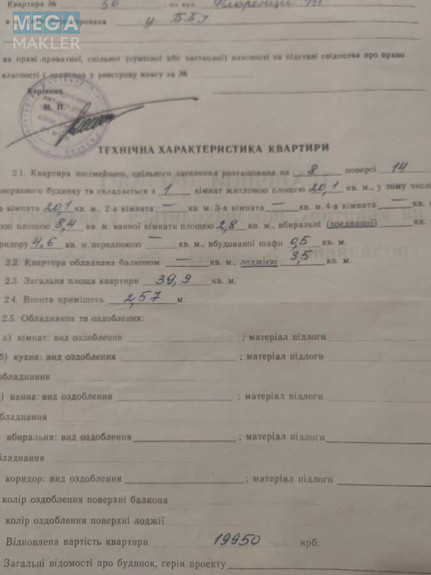 MEGA
MAKLER
Квартира № 50 по вул.
в
на праві приватної, спільної (сумісної або часткової) власності на підставі свідоцтва про право
власності і записана у реєстрову книгу за №
Керівник
М. П.
ТЕХНІЧНА ХАРАКТЕРИСТИКА КВАРТИРИ
2.1. Квартира посімейного, спільного заселення розташована на 8 поверсі 14
поверхового будинку та складається з 1 кімнат житловою площею 20,1 кв. м., у тому числі
а кімната 20,1 кв. м, 2-а кімната — кв. м. 3-я кімната — кв. м. 4-а кімнати — кв. м
хні площею 8,4 кв. м. ванної кімнати площею 2,8 кв. м., вбиральні (поєднаної) кв.
ридору 4,6 кв. м передпокою — кв. м., вбудованої шафи 0,5 кв. м.
2.2. Квартира обладнана балконом — кв. м., лоджією 3,5 кв. м.
2.3. Загальна площа квартири 39,9 кв. м.
2.4. Висота приміщень 2,57 м.
2.5. Обладнання та оздоблення:
а) кімнат: вид оздоблення ; матеріал підлоги
б) кухня: вид оздоблення ; матеріал підлоги
обладнання
) ванна: вид оздоблення ; матеріал підлоги
бладнання
вбиральня: вид оздоблення ; матеріал підлоги
бладнання
коридор: вид оздоблення ; матеріал підлоги
колір оздоблення поверхні балкона
колір оздоблення поверхні лоджії
Відновлена вартість квартири 19950 крб.
Загальні відомості про будинок, серія проекту